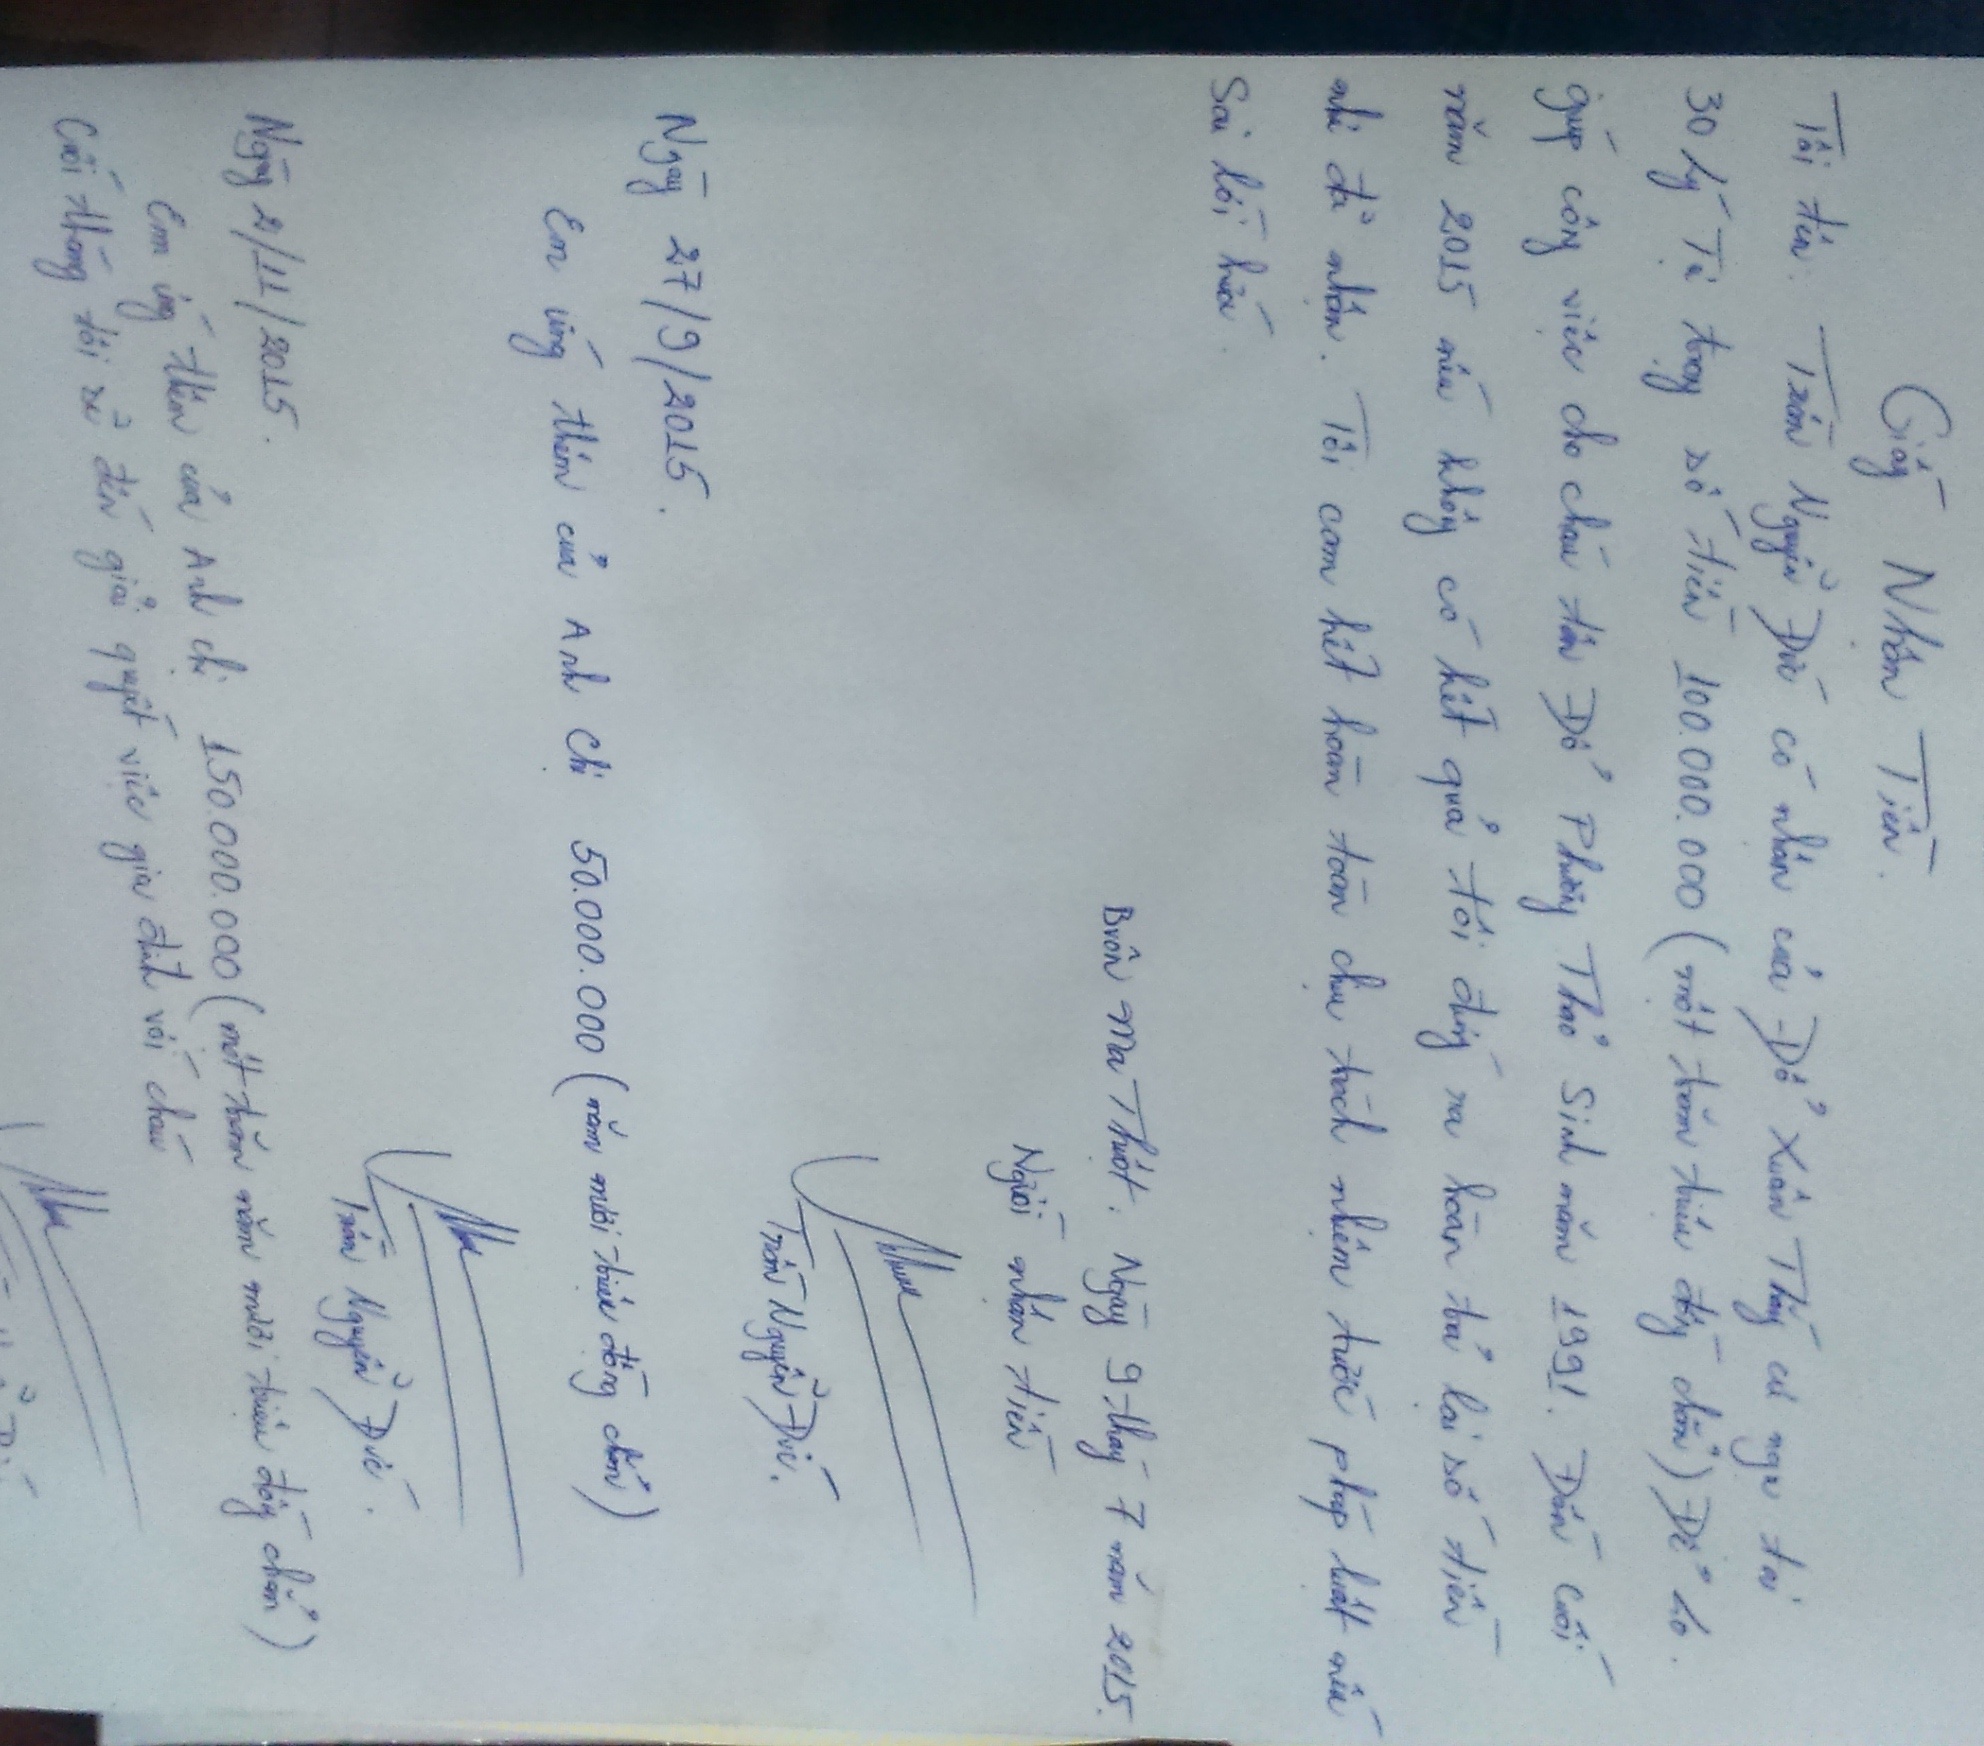 Giấy Nhận Tiền.
Tôi tên: Trần Nguyễn Đức có nhận của Đỗ Xuân Thủy cư ngụ tại
30 Lý Tự Trọng số tiền 100.000.000 (một trăm triệu đồng chẵn) Để lo
giúp công việc cho cháu tên Đỗ Phương Thảo Sinh năm 1991. Đến cuối
năm 2015 nếu không có kết quả tôi đứng ra hoàn trả lại số tiền
như đã nhận. Tôi cam kết hoàn toàn chịu trách nhiệm trước pháp luật nếu
Sai lời hứa.
Buôn Ma Thuột. Ngày 9 tháng 7 năm 2015.
Người nhận tiền
Trần Nguyễn Đức.
Ngày 27/9/2015.
Em ứng thêm của Anh Chị 50.000.000 (năm mươi triệu đồng chẵn)
Trần Nguyễn Đức.
Ngày 2/11/2015.
Em ứng thêm của Anh chị 150.000.000 (một trăm năm mươi triệu đồng chẵn)
Cuối tháng tôi sẽ đến giải quyết việc gia đình với cháu